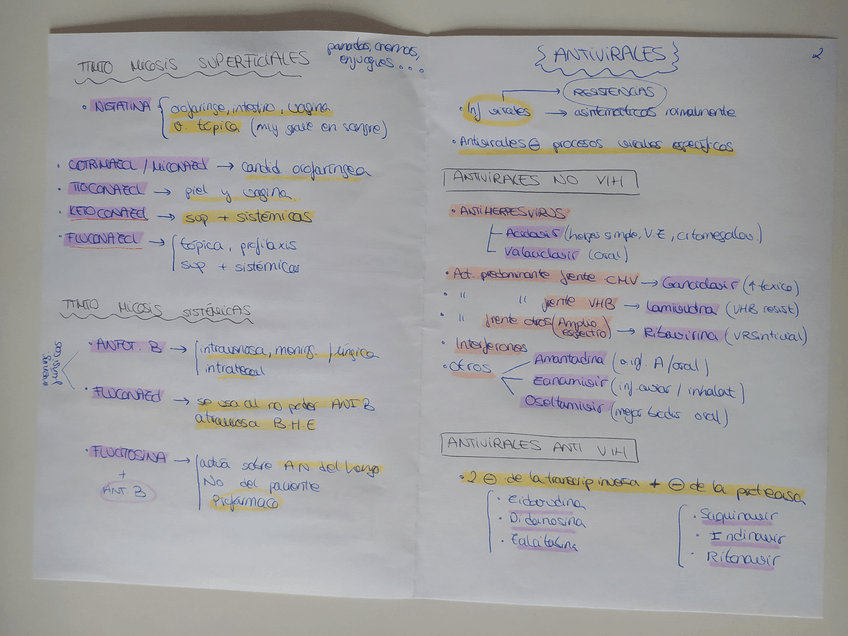 TTMTO MICOSIS SUPERFICIALES
pomadas, cremas,
enjuagues...
• NISTATINA
orofaringe, intestino, vagina
v. tópica (muy grave en sangre)
• COTRIMAZOL / MICONAZOL → candid orofaríngea
• TIOCONAZOL → piel y vagina
• KETOCONAZOL → sup + sistémicas
• FLUCONAZOL →
tópica, profilaxis
sup + sistémicas
TTMTO MICOSIS SISTÉMICAS
• ANFOT. B →
intravenosa, mening. fúngica
intratecal
• FLUCONAZOL →
se usa al no poder ANF B
atraviesa B.H.E
• FLUCITOSINA →
actúa sobre AN del hongo
+
No del paciente
ANF B
Profármaco
2
{ ANTIVIRALES }
RESISTENCIAS
• Inf virales → asintomáticos normalmente
• Antivirales ⊖ procesos virales específicos
ANTIVIRALES NO VIH
• ANTIHERPESVIRUS
Aciclovir (herpes simple, V.E, citomegalov.)
Valaciclovir (oral)
• Act. predominante frente CMV → Ganciclovir (↑ tóxico)
• " " frente VHB → Lamivudina (VHB resist)
• " frente otros (Amplio espectro) → Ribavirina (VRSintival)
• Interferones
• OTROS
Amantadina (o.ig. A/oral)
Zanamivir (inf. aviar / inhalat)
Oseltamivir (mejor tecdis oral)
ANTIVIRALES ANTI VIH
• 2 ⊖ de la transcrip inversa + ⊖ de la proteasa
• Zidovudina
• Didanosina
• Zalcitabina
• Saquinavir
• Indinavir
• Ritonavir